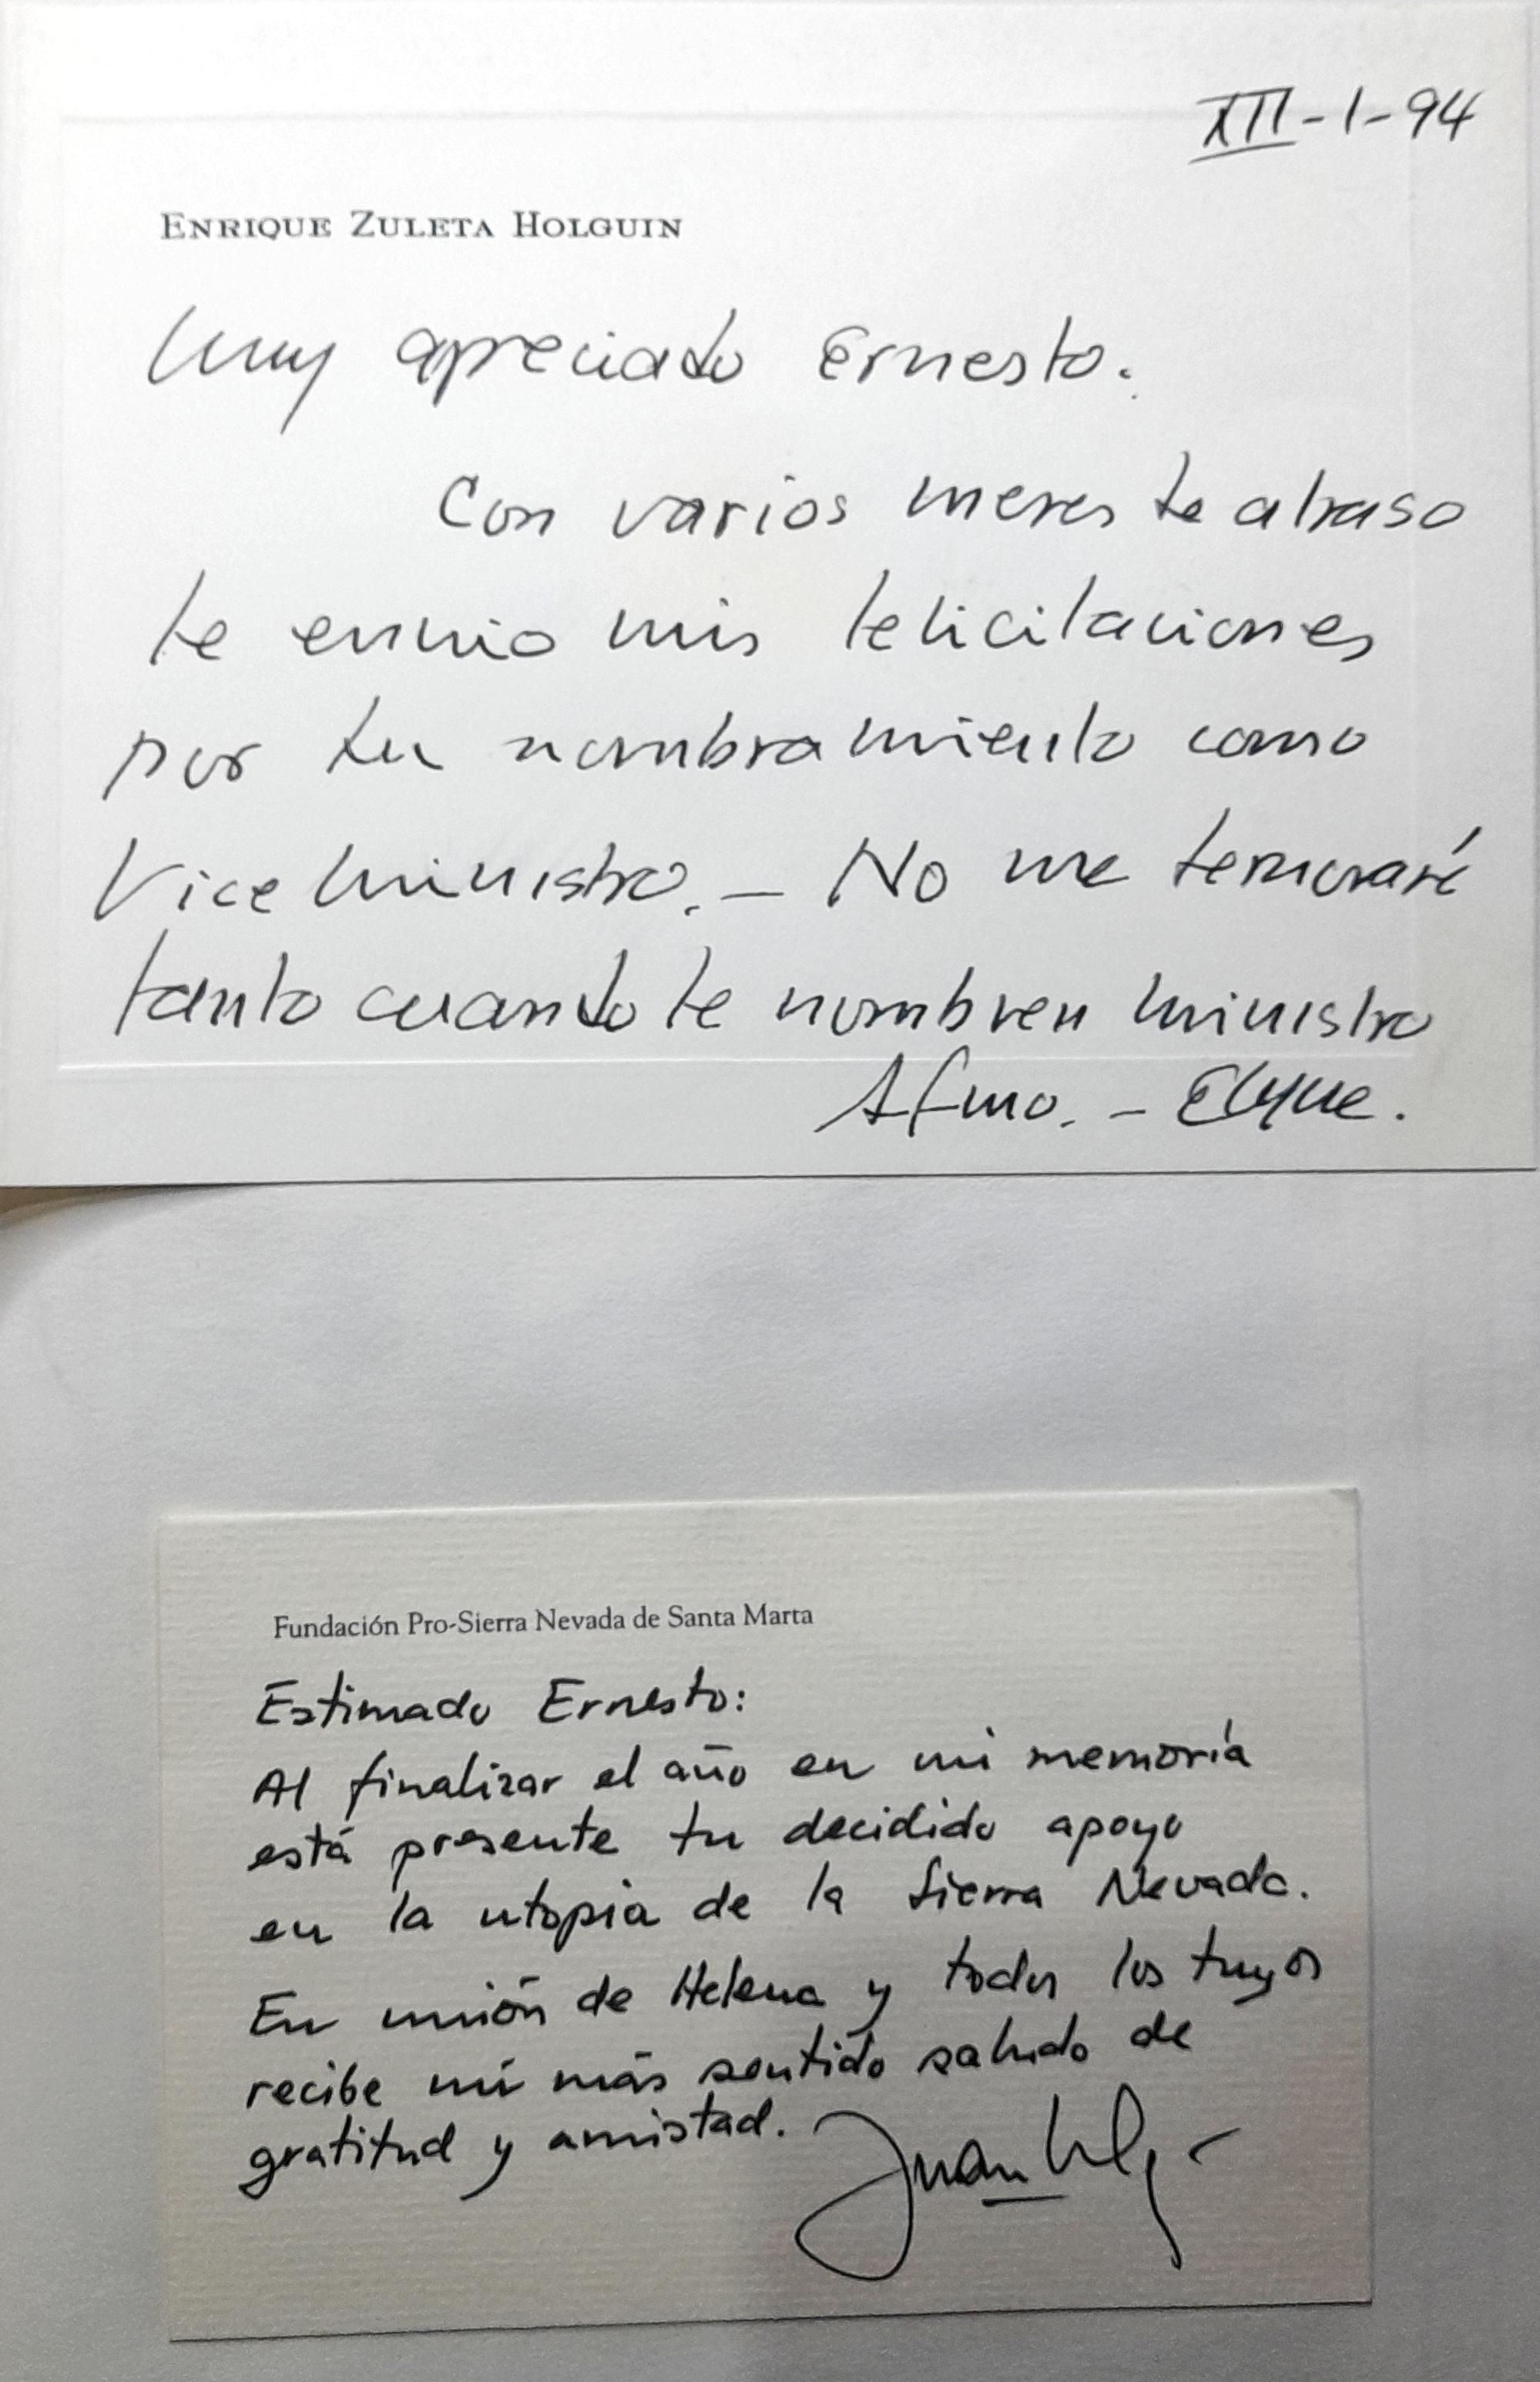 XII-1-94
ENRIQUE ZULETA HOLGUIN
Muy apreciado Ernesto.
Con varios meses de atraso
te envio mis felicitaciones
por tu nombramiento como
Vice Ministro. - No me demoraré
tanto cuando te nombren Ministro
Afmo. -
Fundación Pro-Sierra Nevada de Santa Marta
Estimado Ernesto:
Al finalizar el año en mi memoria
está presente tu decidido apoyo
en la utopia de la Sierra Nevada.
En unión de Helena y todos los tuyos
recibe mi más sentido saludo de
gratitud y amistad.
Juan